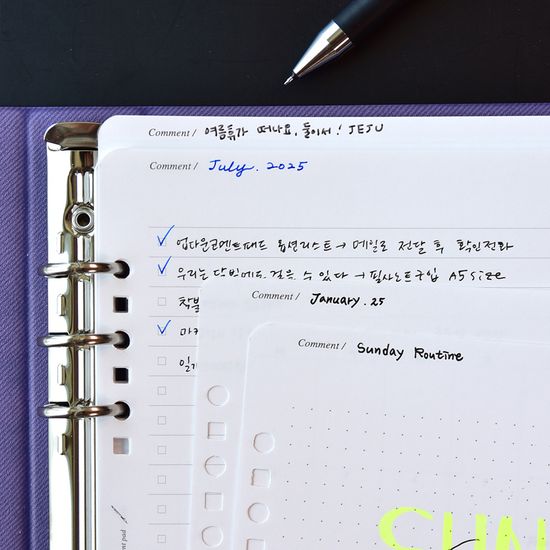 Comment / 여름휴가 떠나요, 둘이서! JEJU
Comment / July. 2025
업다운코멘트패드 옵션리스트 → 메일로 전달 후 확인전화
우리는 단번에도 걸을 수 있다 → 필사노트구입 A5 size
Comment / January. 25
Comment / Sunday Routine
일기
SUN